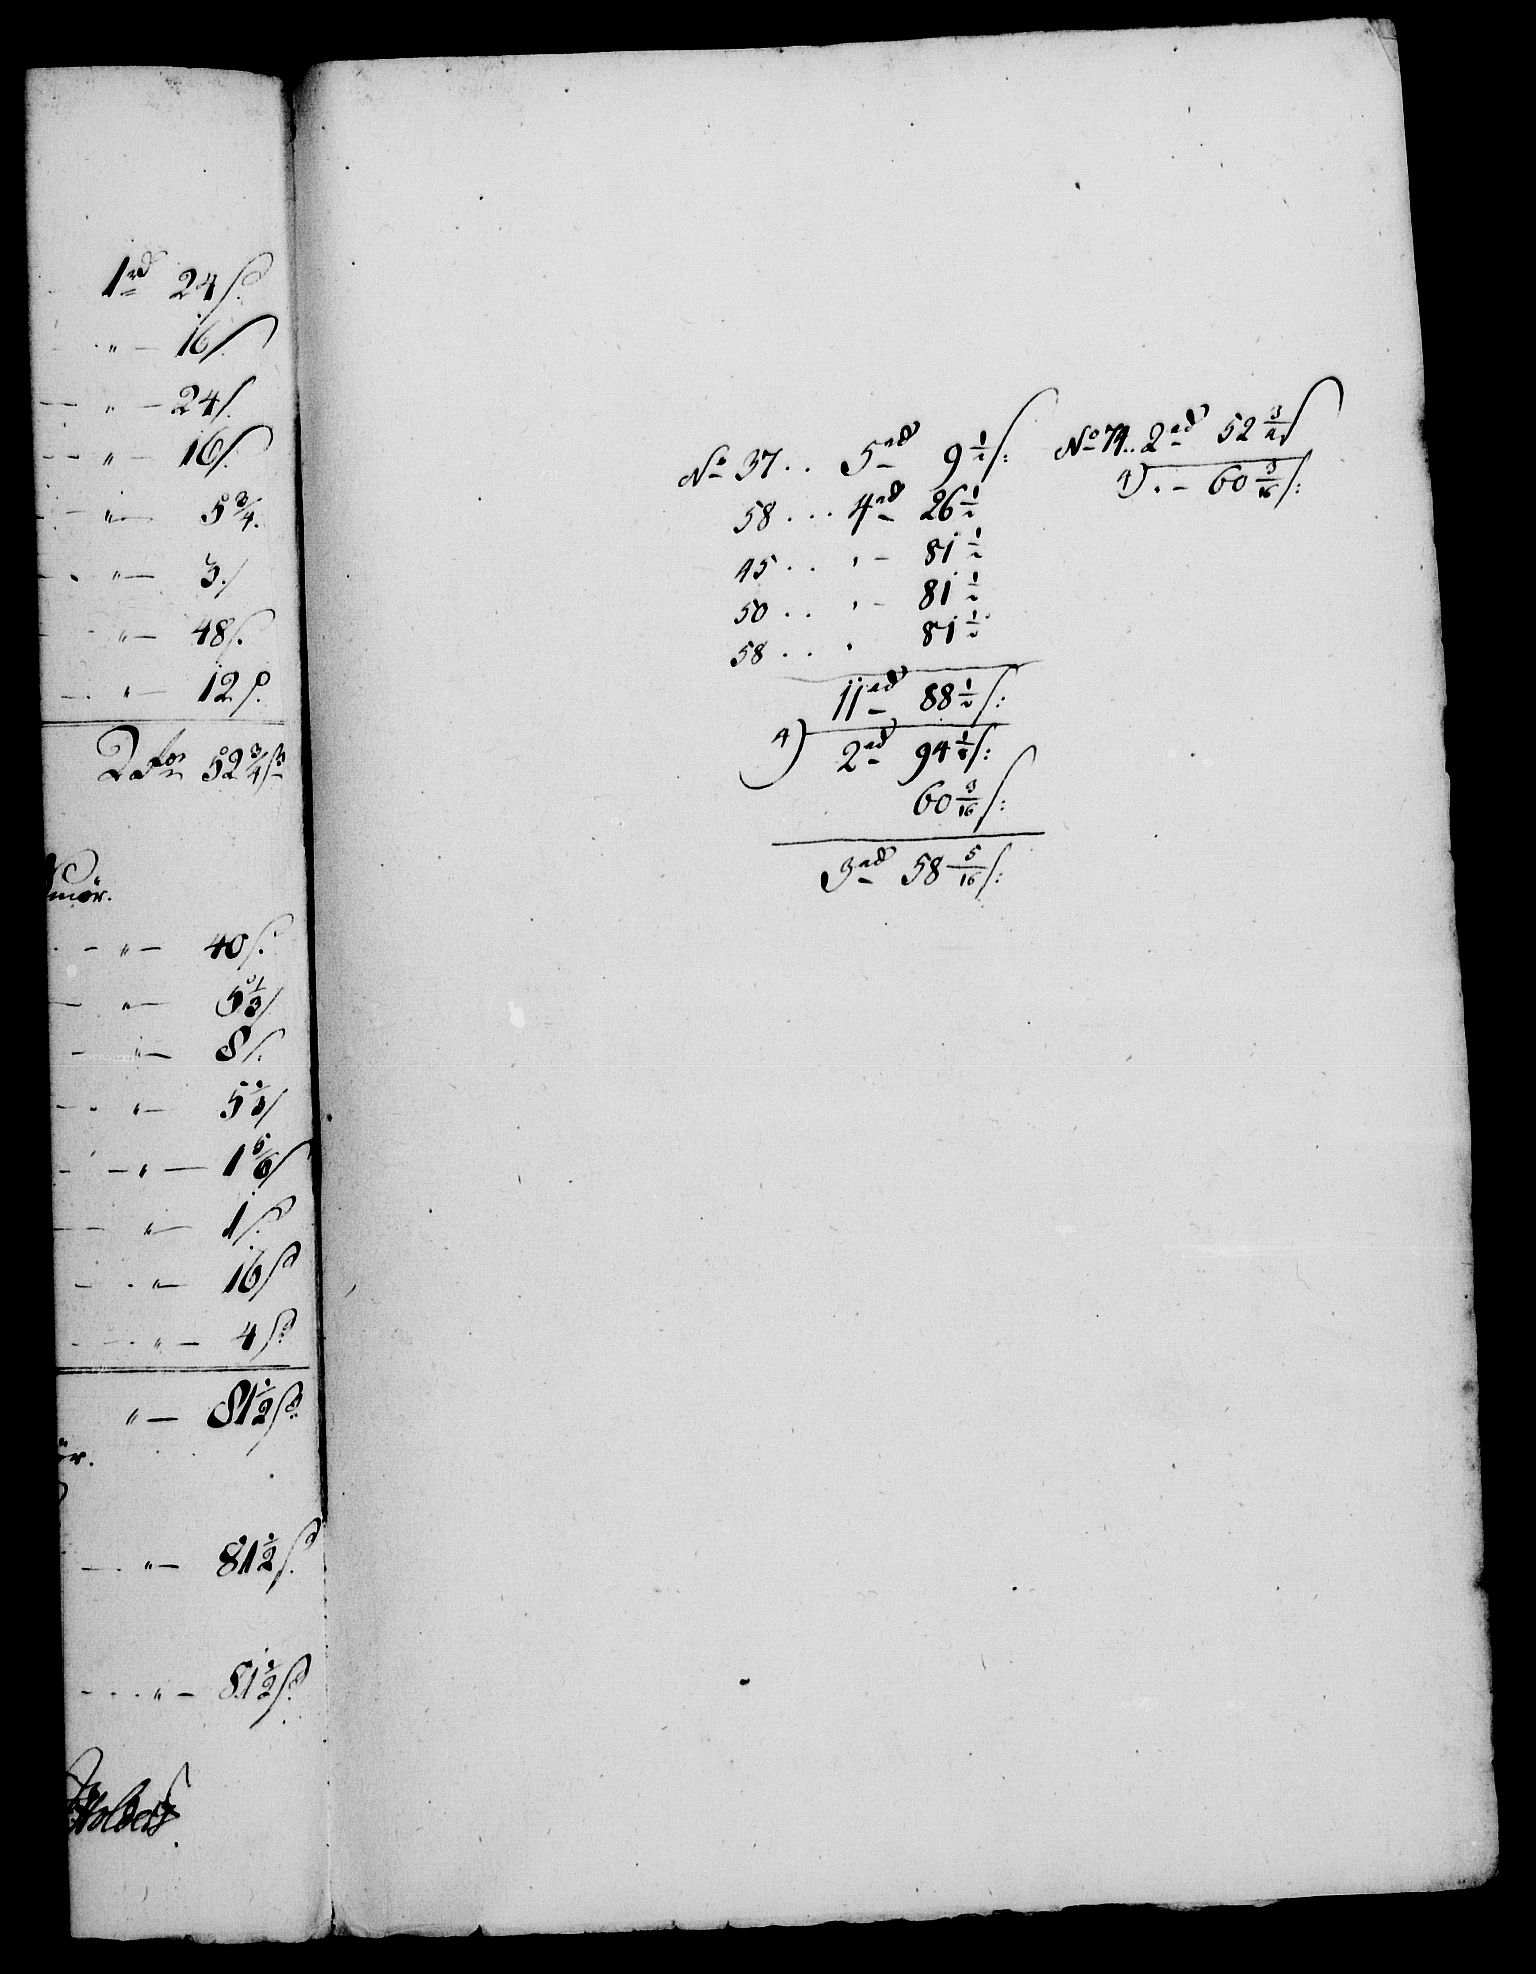 1rd 24 s.
" — 16 s.
" — 24 s.
" — 16 s.
" — 5 3/4.
" — 3 s.
" — 48 s.
" — 12 s.
52 3/4 s
mör.
" — 40 s.
" — 5 1/3 s
" — 8 s.
" — 5 1/3 s
" — 1 5/6 s
" — 1 s.
" — 16 s
" — 4 s
" — 81 1/2 s
ör.
" — 81 1/2 s.
" — 81 1/2 s.
No 37 . . 5rd 9 1/2 s:
58 . . . 4rd 26 1/2
45 . . " — 81 1/2
50 . . " — 81 1/2
58 . . " 81 1/2
11rd 88 1/2 s:
4) 2rd 94 1/8 s:
60 3/16 s:
3rd 58 5/16 s:
No 74 . . 2rd 52 3/4 s
4) . — 60 3/16 s: